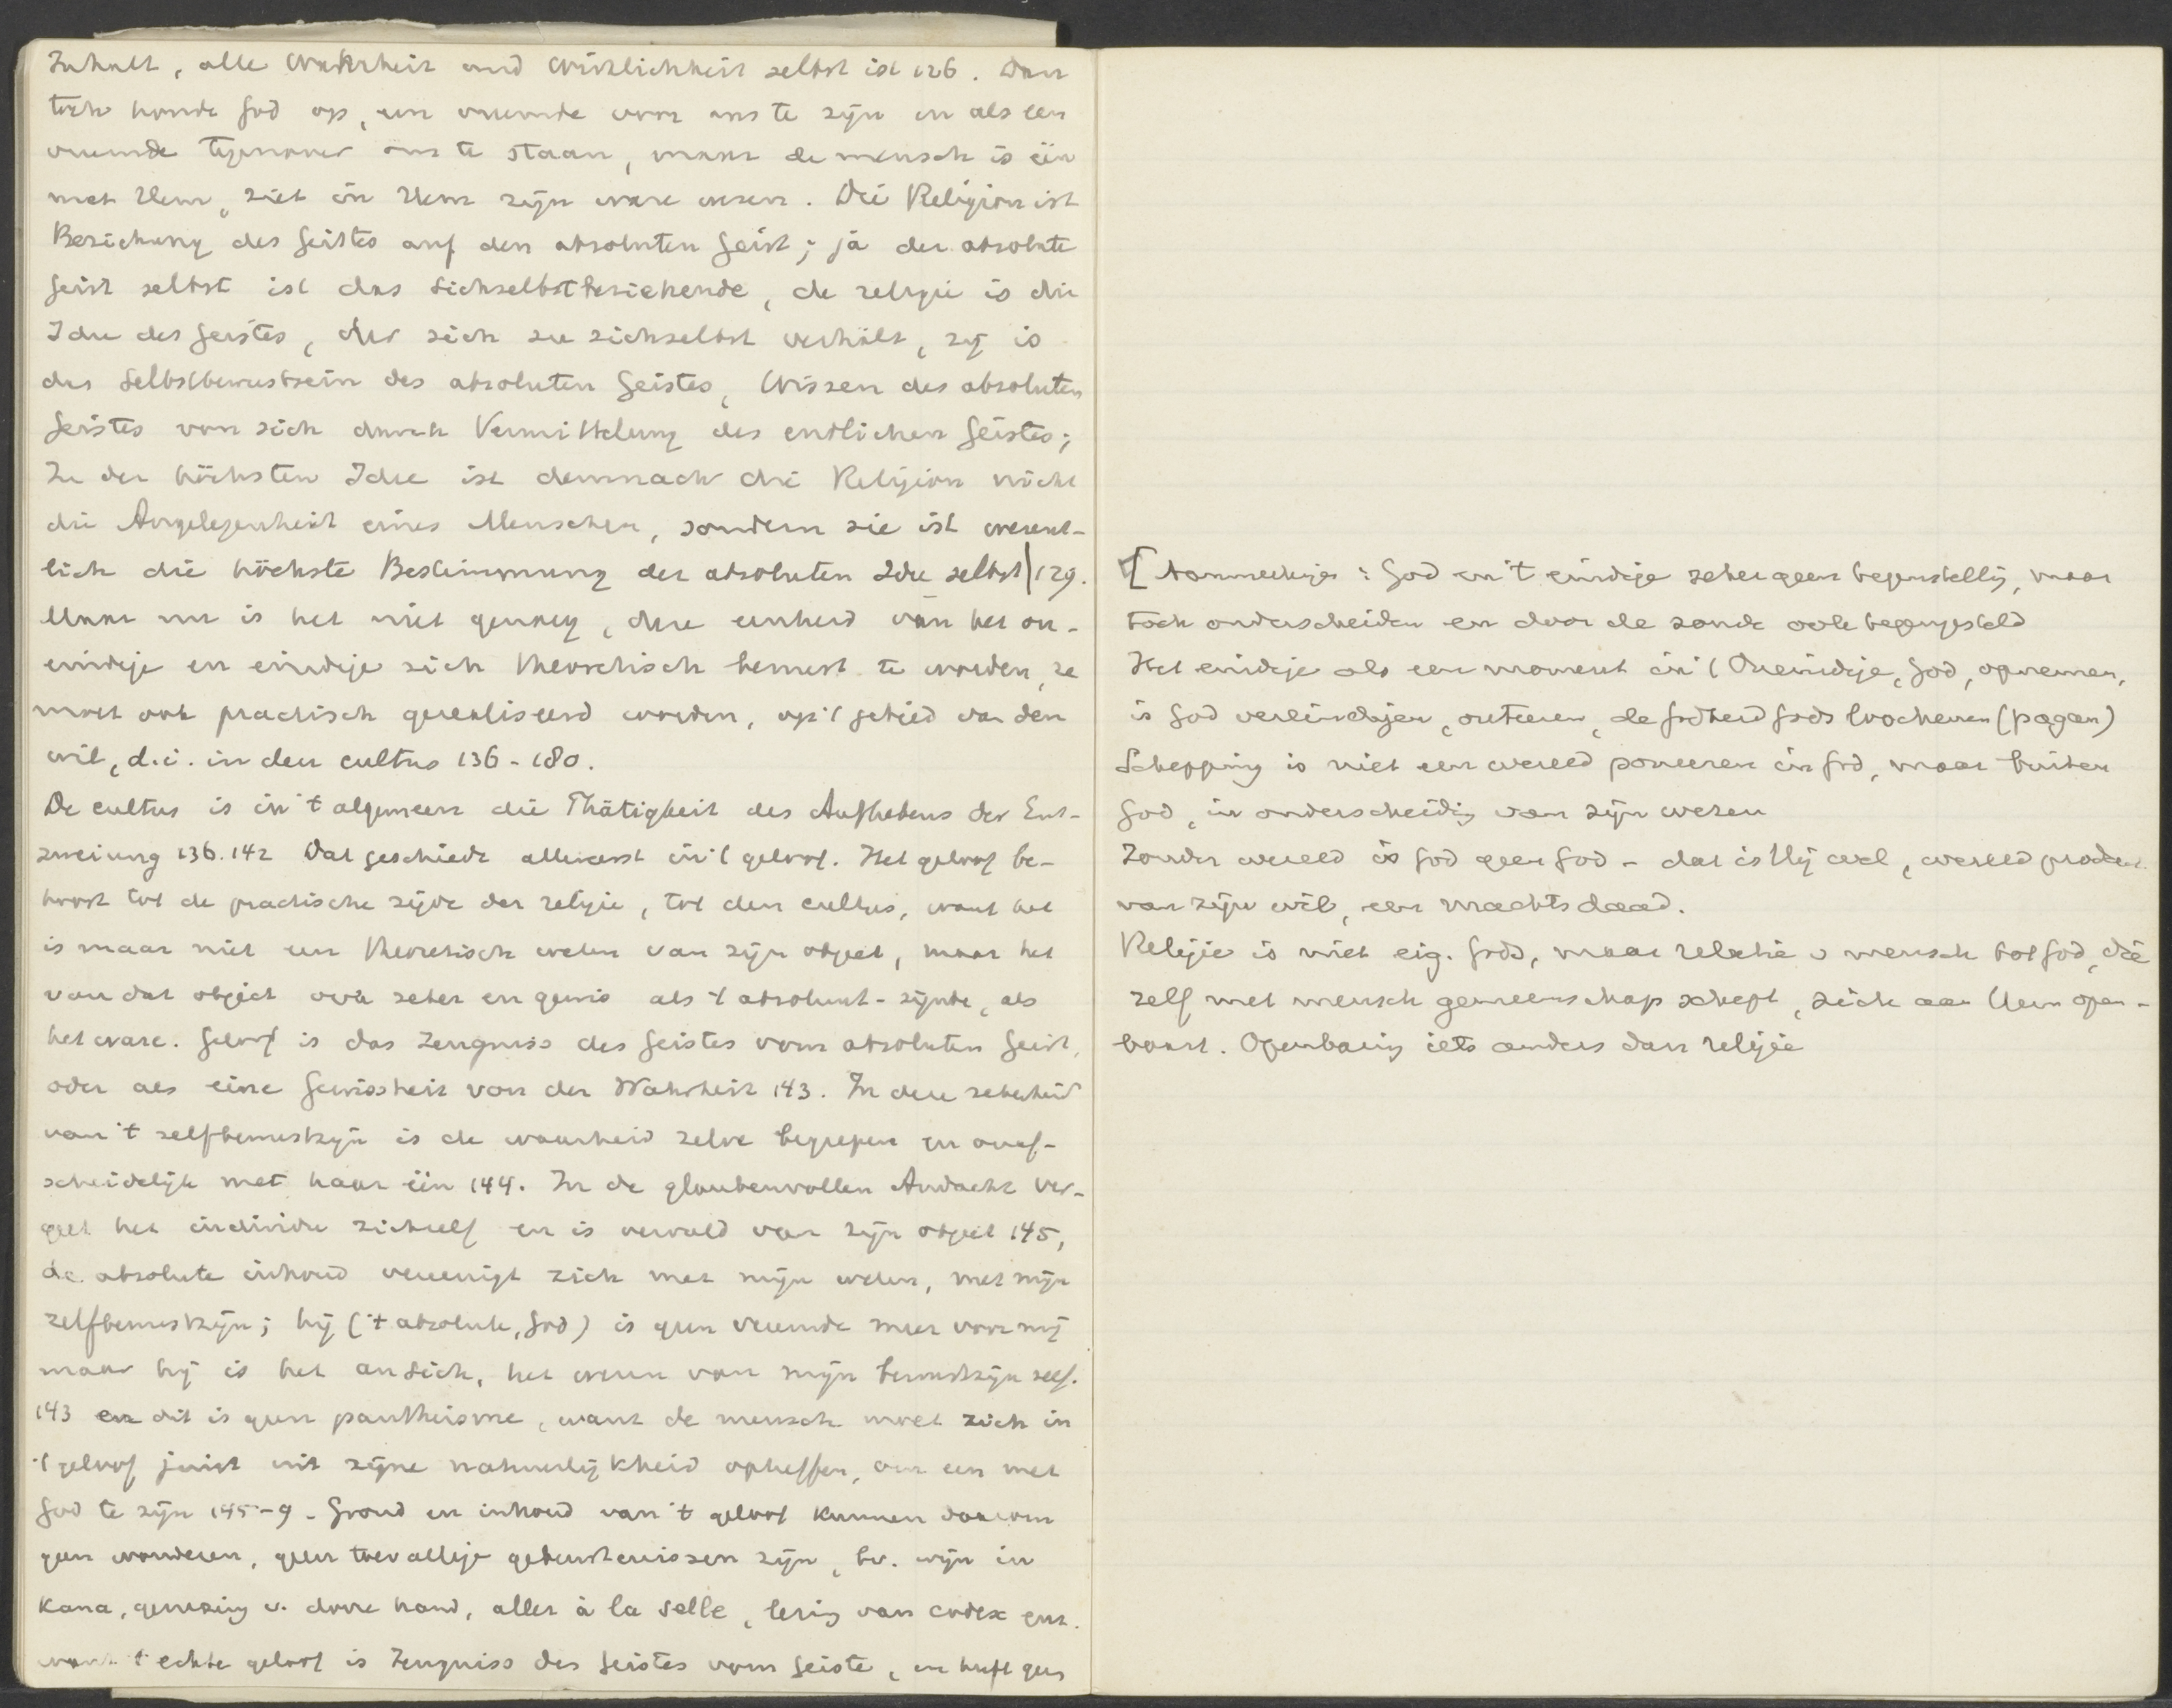 Inhalt, alle Wahrheit und Wirklichkeit selbst ist 126. Dan
toch houdt God op, een vreemde voor ons te zijn en als een
vreemde tegenover ons te staan, maar de mensch is één
met Hem, ziet in Hem zijn ware wezen. Die Religion ist
Beziehung des Geistes auf den absoluten Geist; ja der absolute
Geist selbst ist das Sichselbstbeziehende, de religie is die
Idee des Geistes, der sich zu sichselbst verhält, zij is
das Selbstbewustsein des absoluten Geistes, Wissen des absoluten
Geistes von sich durch Vermittelung des endlichen Geistes;
In der höchsten Idee ist demnach die Religion nicht
die Angelegenheit eines Menschen, sondern sie ist wesent-
lich die höchste Bestimmung der absoluten Idee selbst 129.
Maar nu is het niet genoeg, deze eenheid van het on-
eindige en eindige zich theoretisch bewust te worden, ze
moet ook practisch gerealiseerd worden, op 't gebied van den
wil, d.i. in den cultus 136-180.
De cultus is in 't algemeen die Thätigkeit des Aufhebens der Ent-
zweiung 136.142 Dat geschiedt allereerst in 't geloof. Het geloof be-
hoort tot de practische zijde der religie, tot den cultus, want het
is maar niet een theoretisch weten van zijn object, maar het
van dat object ook zeker en gewis als 't absoluut-zijnde, als
het ware. Geloof is das Zeugniss des Geistes vom absoluten Geist,
oder als eine Gewissheit von der Wahrheit 143. In deze zekerheid
van 't zelfbewustzijn is de waarheid zelve begrepen en onaf-
scheidelijk met haar één 144. In de glaubenvollen Andacht ver-
geet het individu zichzelf en is vervuld van zijn object 145,
de absolute inhoud vereenigt zich met mijn weten, met mijn
zelfbewustzijn; hij ('t absolute, God) is geen vreemde meer voor mij
maar hij is het ansich, het wezen van mijn bewustzijn zelf.
143 en dit is geen pantheisme, want de mensch moet zich in
't geloof juist uit zijne natuurlijkheid opheffen, om een met
God te zijn 145-9. Grond en inhoud van 't geloof kunnen daarom
geen wonderen, geen toevallige gebeurtenissen zijn, bv. wijn in
Kana, genezing v. dorre hand, alles à la Selle, lezing van codex enz.
want 't echte geloof is Zeugniss des Geistes vom Geiste, en heeft geen
[Aanmerkinge: God en 't eindige zeker geen tegenstellg, maar
toch onderscheiden en door de zonde ook tegengesteld
Het eindige als een moment in 't Oneindige, God, opnemen,
is God vereindigen, de godheid Gods loochenen (pagan)
Schepping is niet een wereld poneeren in God, maar buiten
God, in onderscheidig van zijn wezen
Zonder wereld is God geen God - dat is Hij wel, wereld product
van zijn wil, een machtsdaad.
Religie is niet eig. Gods, maar relatie v mensch tot God, die
zelf met mensch gemeenschap schept, zich aan hem open-
baart. Openbaring iets anders dan religie